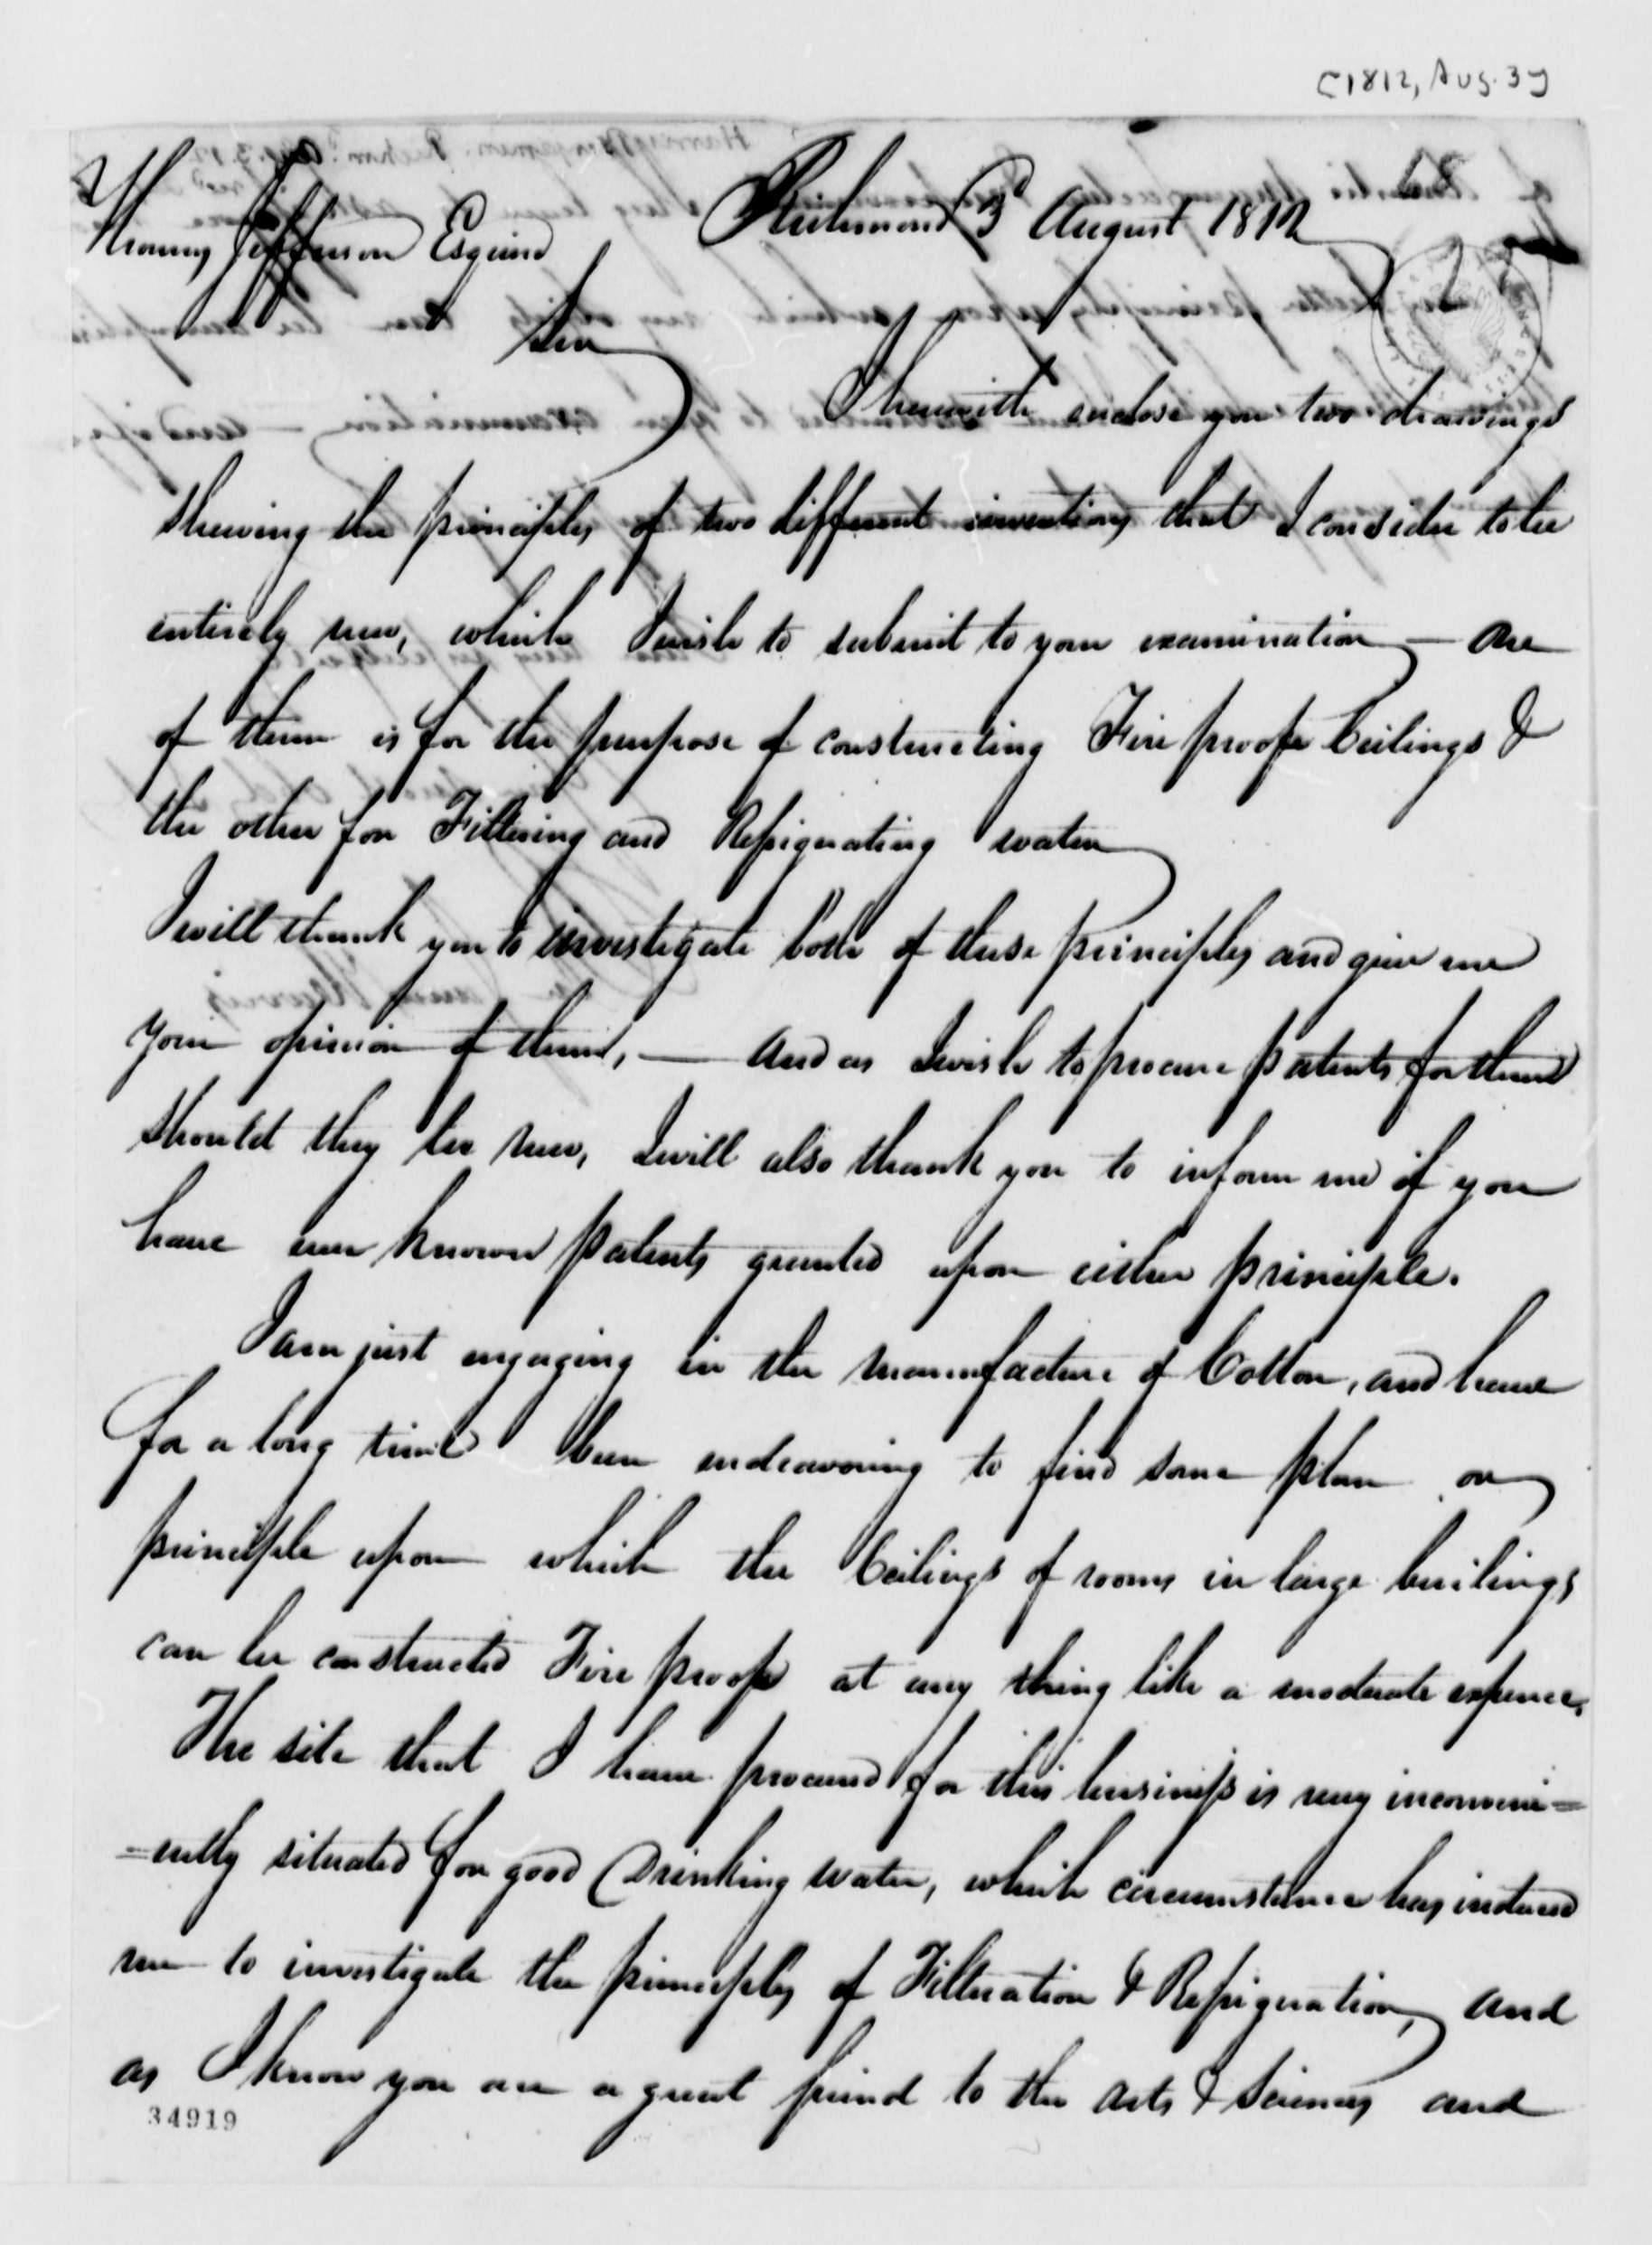 [1812, Aug. 3]
Richmond 3d August 1812
Thomas Jefferson Esquire
Sir
I herewith enclose you two drawings
shewing the principles of two different inventions that I consider to be
entirely new, which I wish to submit to your examination — One
of them is for the purpose of constructing Fire proof Ceilings &
the other for Filtering and Refrigerating water
I will thank you to investigate both of these principles and give me
your opinion of them, — And as I wish to procure patents for them
should they be new, I will also thank you to inform me if you
have ever known patents granted upon either principle.
I am just engaging in the manufacture of Cotton, and have
for a long time been endeavoring to find some plan or
principle upon which the Ceilings of rooms in large builings
can be constructed Fire proof at any thing like a moderate expence.
The site that I have procured for this business is very inconveni=
=ently situated for good Drinking water, which circumstance has induced
me to investigate the principles of Filteration & Refrigeration, and
as I know you are a great friend to the Arts & Sciences and
34919